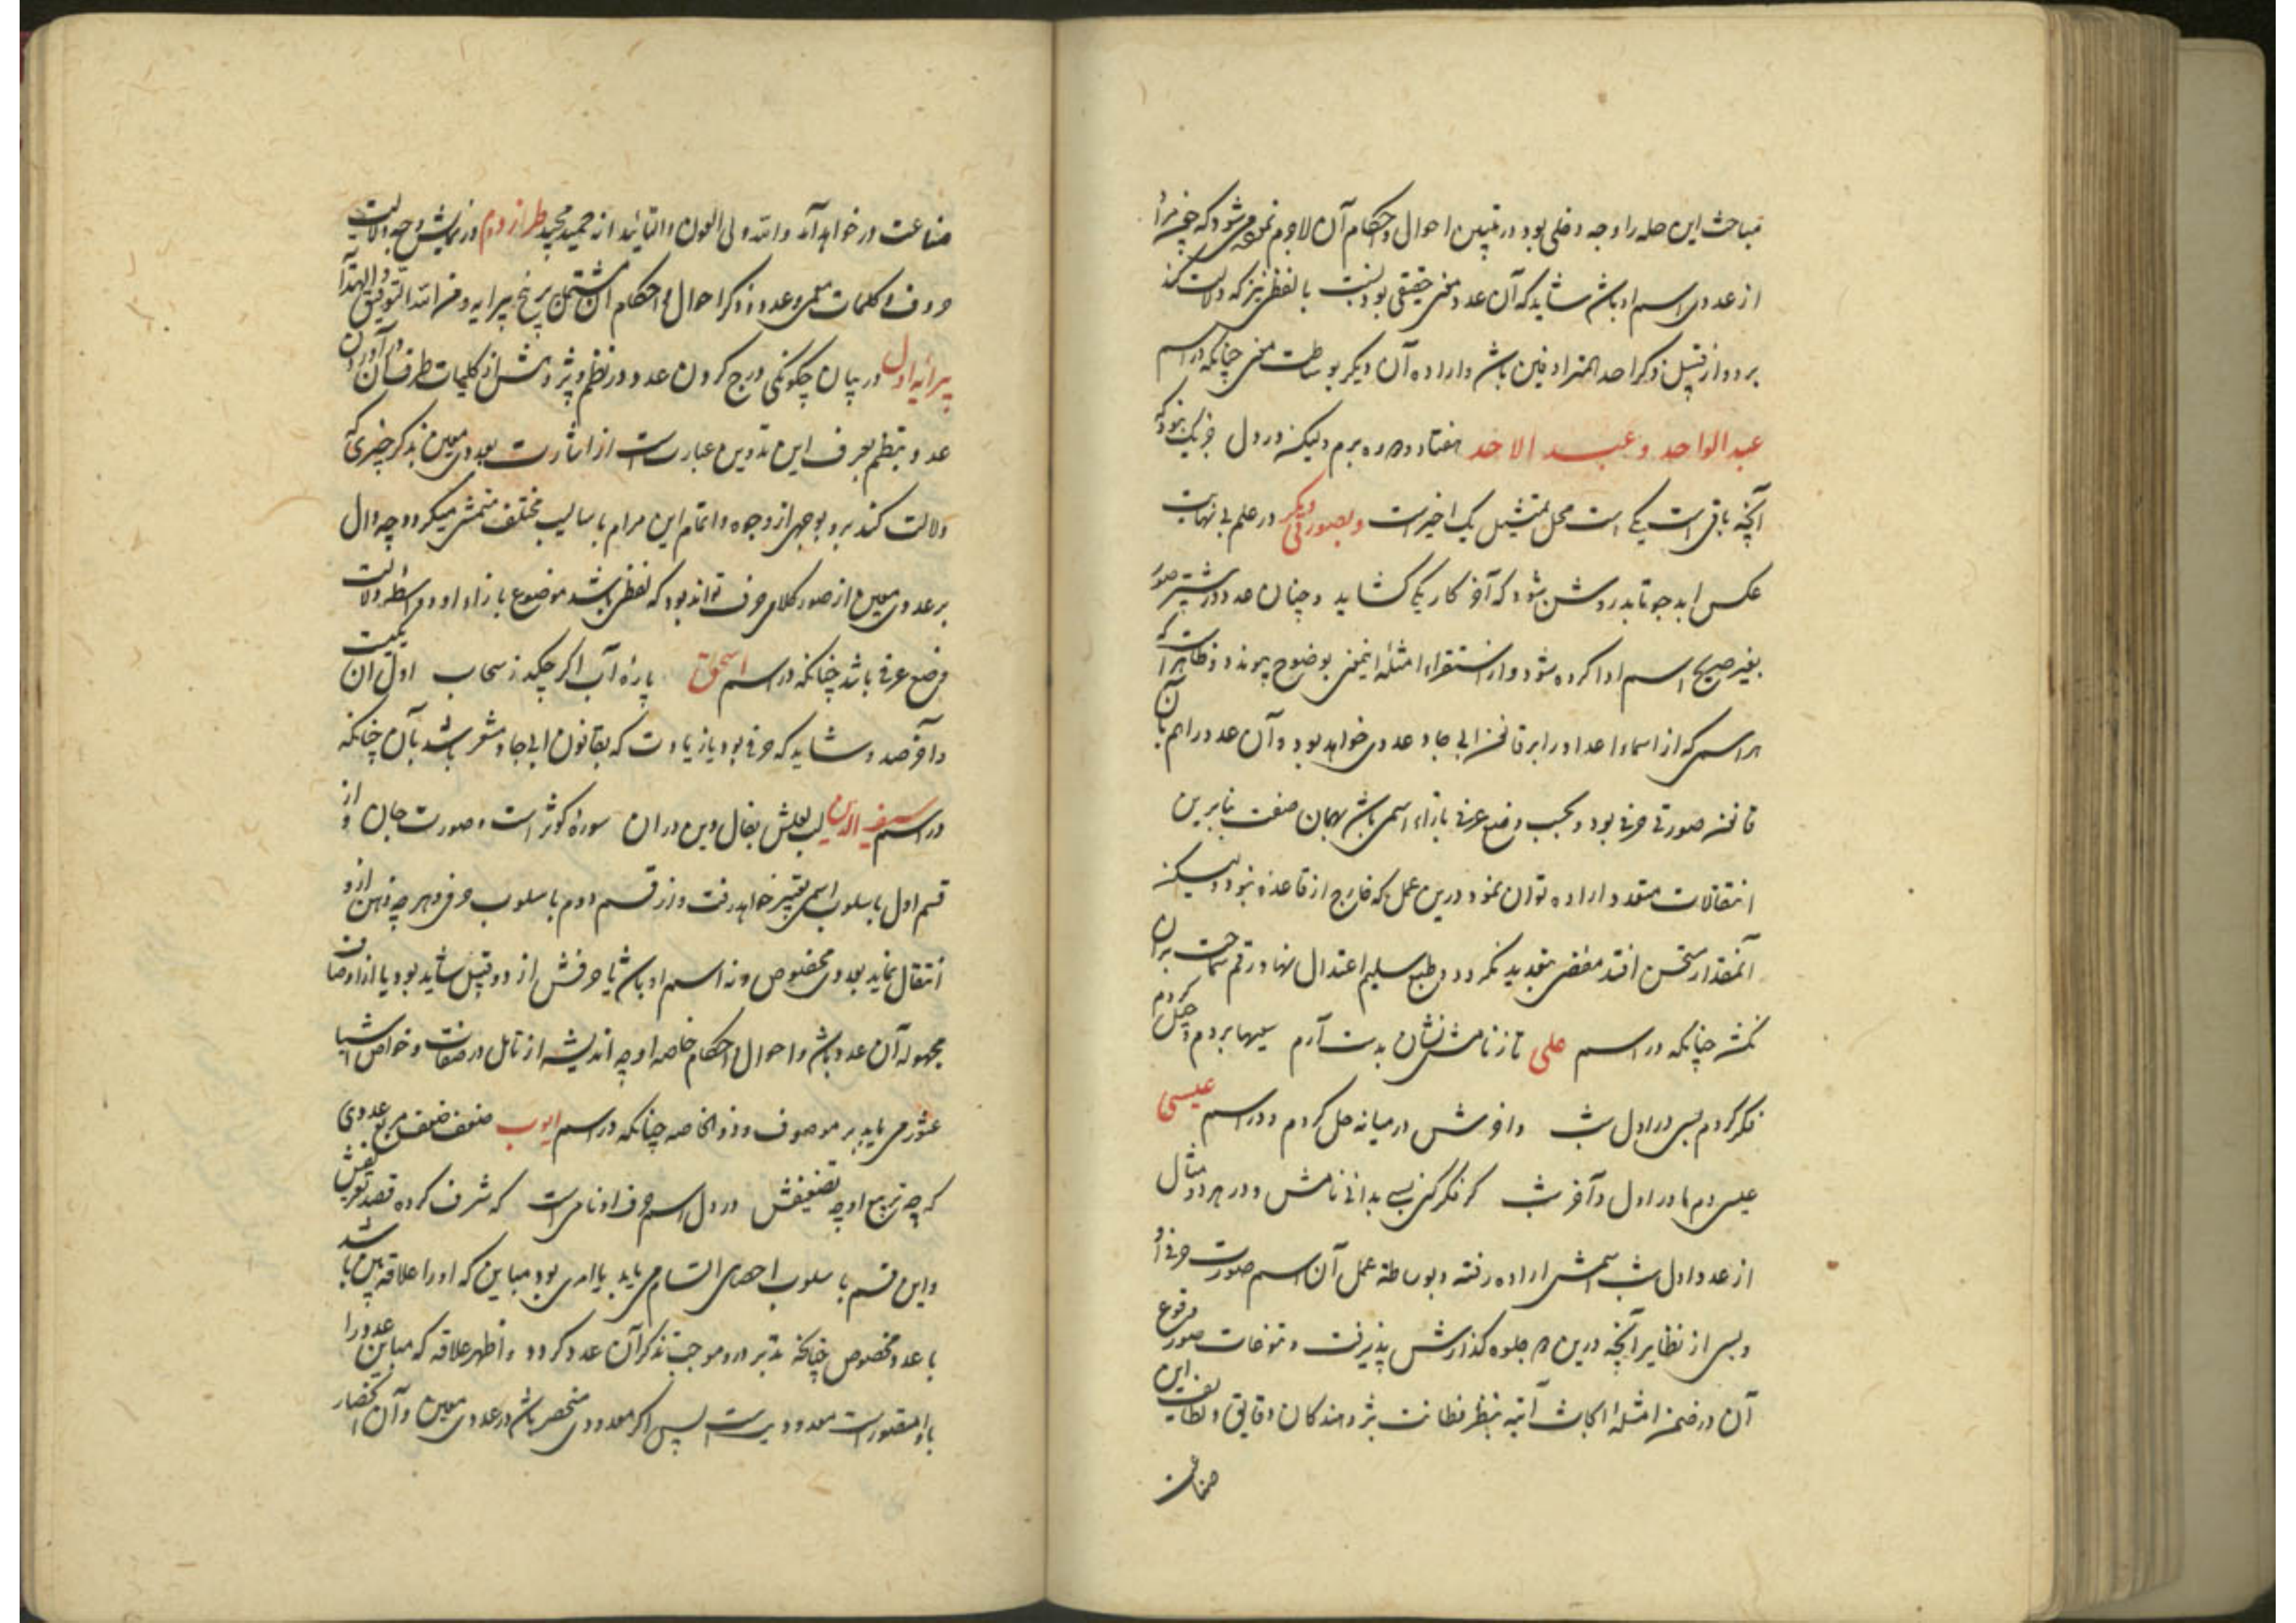 مباحث این حله را وجه دخلی بود در تبیین احوال و احکام آن لاجرم نموده می شود که چون جزئی را
از عددی اسم او باشد شاید که آن عدد معنی حقیقی بود نسبت با لفظی نیز که دلالت کند
برو و از قبیل ذکر احد المترادفین باشد و اراده آن دیگر بوساطت معنی چنانکه در اسم
عبد الواحد و عبد الاحد هفتاد و ده برم ولیکن در دل جز یک نبود که
آنچه باقی است یکی است محل تمثیل یک اخیر است و بصورتی دیگر در علم بی نهایت
عکس ابجد جو تا بد روشن شود که آخر کار یکی گشاید و چنان عدد در بیشتر صور
بغیر صریح اسم ادا کرده شود و از استقراء امثله اینمعنی بوضوح پیوندد و ظاهر است که
هر اسمی که از اسماء اعداد را بر قانون ابی جاد عددی خواهد بود و آن عدد را هم بآن
قانون صورتی حرفی بود و بحسب وضع عرفی بازاء اسمی باشد بهمان صفت بنابرین
انتقالات متعدد اراده توان نمود درین عمل که خارج از قاعده نبود و لیکن
آنمقدار مستحسن افتد مفضی بتعدید نگردد و طبع سلیم اعتدال نهاد رقم سماجت بران
نکشد چنانکه در اسم علی تا ز نامش نشان بدست آرم سعیها بردم و حیل کردم
فکر کردم بسی در اول شب و آخرش در میانه حل کردم و در اسم عیسی
عیسی دم ما در اول و آخر شب گر فکر کنی بسی بدانی نامش و در هر دو مثال
از عدد اول شب اسمش اراده رفته و بوساطه عمل آن اسم صورت حرفی او
و بسی از نظایر آنچه درین ده جلوه گذارش پذیرفت و تنوعات صور وقوع
آن در ضمن امثله ابحاث آتیه بنظر فطانت پژوهندگان دقایق و لطایف این
صناعت
صناعت در خواهد آمد والله ولی العون والتأیید انه حمید مجید طراز دوم در نمایش وجه دلالت
حروف و کلمات معمی و عدد و ذکر احوال و احکام آن مشتمل بر پنج پیرایه و من الله التوفیق والهدایه
پیرایه اول در بیان چگونگی درج کردن عدد در نظم و پژوهش از کلیات طرف آن در آوردن
عدد بنظم بعرف این تدوین عبارتست از اشارت بعددی معین بذکر چیزی که
دلالت کند برو بوجهی از وجوه و اتمام این مرام باسالیب مختلف متمشی میگردد چه دال
بر عددی معین از صور کلامی و حرف تواند بود که لفظی باشد موضوع بازاء او و واسطه دلالت
وضع عرفی باشد چنانکه در اسم اسحق پاره آب اگر چکد ز سحاب اولش آن یکیست
و آخر صد و شاید که حرفی بود یا زیادت که بقانون ابی جاد مشعر باشد بآن چنانکه
در اسم سیف الدین لب لعلش بفال دین دران سوره کوثر است و صورت جان و از
قسم اول باسلوب اسمی تعبیر خواهد رفت و از قسم دوم باسلوب حرفی و هر چه ذهن ازو
انتقال نماید بعددی مخصوص و نه اسم او باشد یا حرفش از دو قبیل شاید بود یا از اوصاف
مجهوله آن عدد باشد و احوال و احکام خاصه او چه اندیشه از تامل در صفات و خواص اشیا
عثور می یابد بر موصوف و ذو الخاصه چنانکه در اسم ایوب ضعف ضعف مربع عددی
که چه تربیع او چه تضعیفش در دل اسم حرف او نامی است که شرف کرده قصد تعریفش
و این قسم باسلوب احصای اتسام می یابد یا امری بود مباین که او را علاقه بین باشد
با عدد مخصوص چنانکه تدبر درو موجب تذکر آن عدد گردد و اظهر علاقه که مباین عدد را
باو متصورست معدودیت است پس اگر معدودی منحصر باشد در عددی معین و آن انحصار